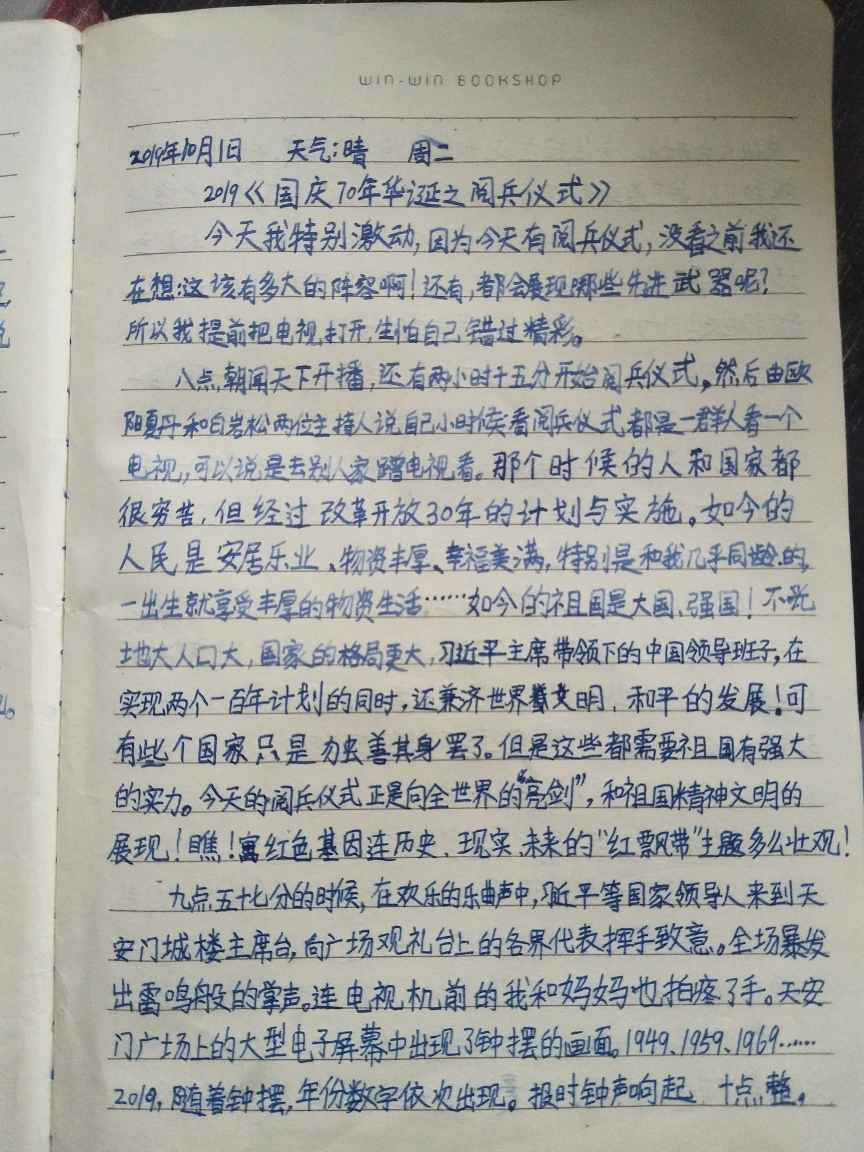 WIN-WIN BOOKSHOP
2019年10月1日 天气:晴 周二
2019《国庆70年华诞之阅兵仪式》
今天我特别激动,因为今天有阅兵仪式,没看之前我还
在想:这该有多大的阵容啊!还有,都会展现哪些先进武器呢?
所以我提前把电视打开,生怕自己错过精彩。
八点,朝闻天下开播,还有两小时十五分开始阅兵仪式。然后由欧
阳夏丹和白岩松两位主持人说自己小时候看阅兵仪式都是一群人看一个
电视,可以说是去别人家蹭电视看。那个时候的人和国家都
很穷苦,但经过改革开放30年的计划与实施。如今的
人民是安居乐业、物资丰厚、幸福美满,特别是和我几乎同龄的,
一出生就享受丰厚的物资生活……如今的祖国是大国、强国!不光
地大人口大,国家的格局更大,习近平主席带领下的中国领导班子,在
实现两个一百年计划的同时,还兼济世界文明、和平的发展!可
有些个国家只是独善其身罢了。但是这些都需要祖国有强大
的实力。今天的阅兵仪式正是向全世界的“亮剑”,和祖国精神文明的
展现!瞧!寓红色基因连历史、现实、未来的“红飘带”主题多么壮观!
九点五十七分的时候,在欢乐的乐曲声中,习近平等国家领导人来到天
安门城楼主席台,向广场观礼台上的各界代表挥手致意。全场暴发
出雷鸣般的掌声。连电视机前的我和妈妈也拍疼了手。天安
门广场上的大型电子屏幕中出现了钟摆的画面。1949、1959、1969……
2019,随着钟摆,年份数字依次出现。报时钟声响起、十点整。